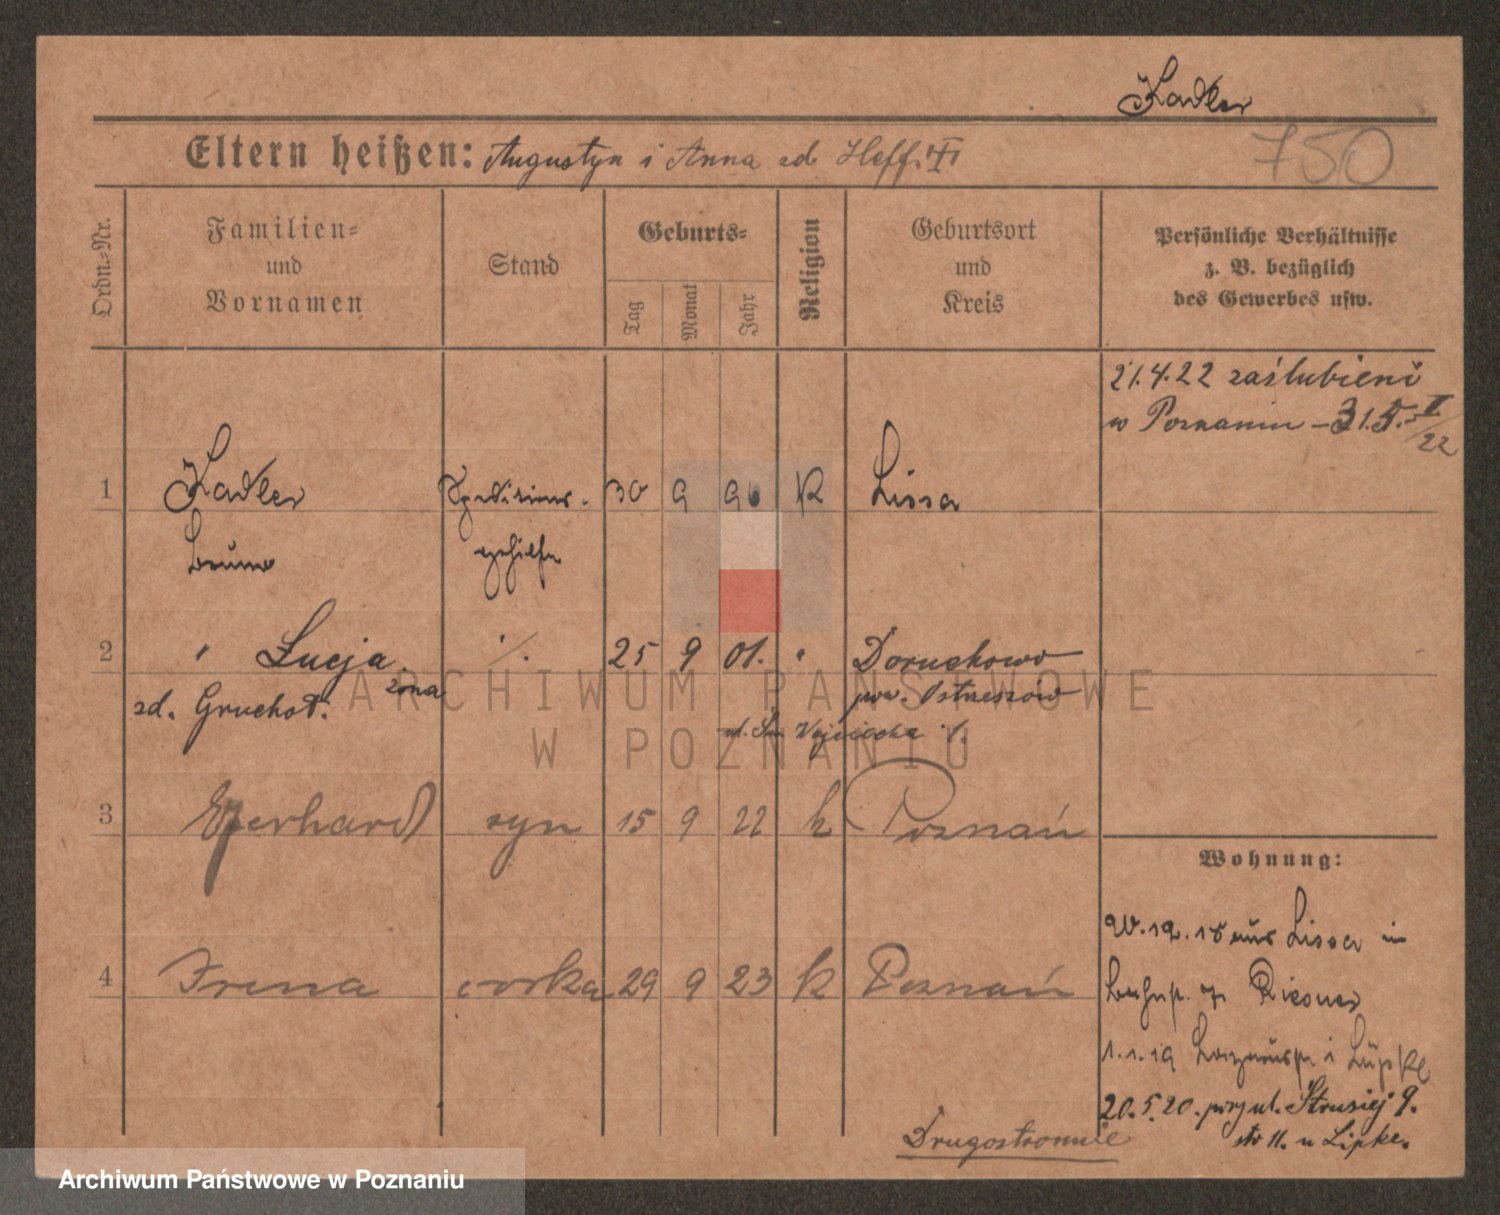 Kadler
750
Eltern heißen: Augustyn i Anna zd Heff.
Ordn.-Nr.
Familien-
und
Vornamen
Stand
Geburts-
Tag
Monat
Jahr
Religion
Geburtsort
und
Kreis
Persönliche Verhältnisse
z. B. bezüglich
des Gewerbes usw.
21.4.22 zaślubieni
w Poznaniu – 31.5. 22
1 Kadler Speditions- 30 9 96 K Lissa
Bruno gehilfe
2 " Łucja. ./. 25 9 01. " Doruchowo
żona
zd. Gruchot. pow. Ostrzeszów
ul. Św. Wojciecha 1.
ARCHIWUM PAŃSTWOWE
W POZNANIU
3 Eberhard syn 15 9 22 k Poznań
4 Irena córka 29 9 23 k Poznań
Wohnung:
20.12.18 aus Lissa in
1.1.19 Lüpke
20.5.20. przy ul. Strusiej 9.
str 11. u Lipke.
Drugostronnie
Archiwum Państwowe w Poznaniu